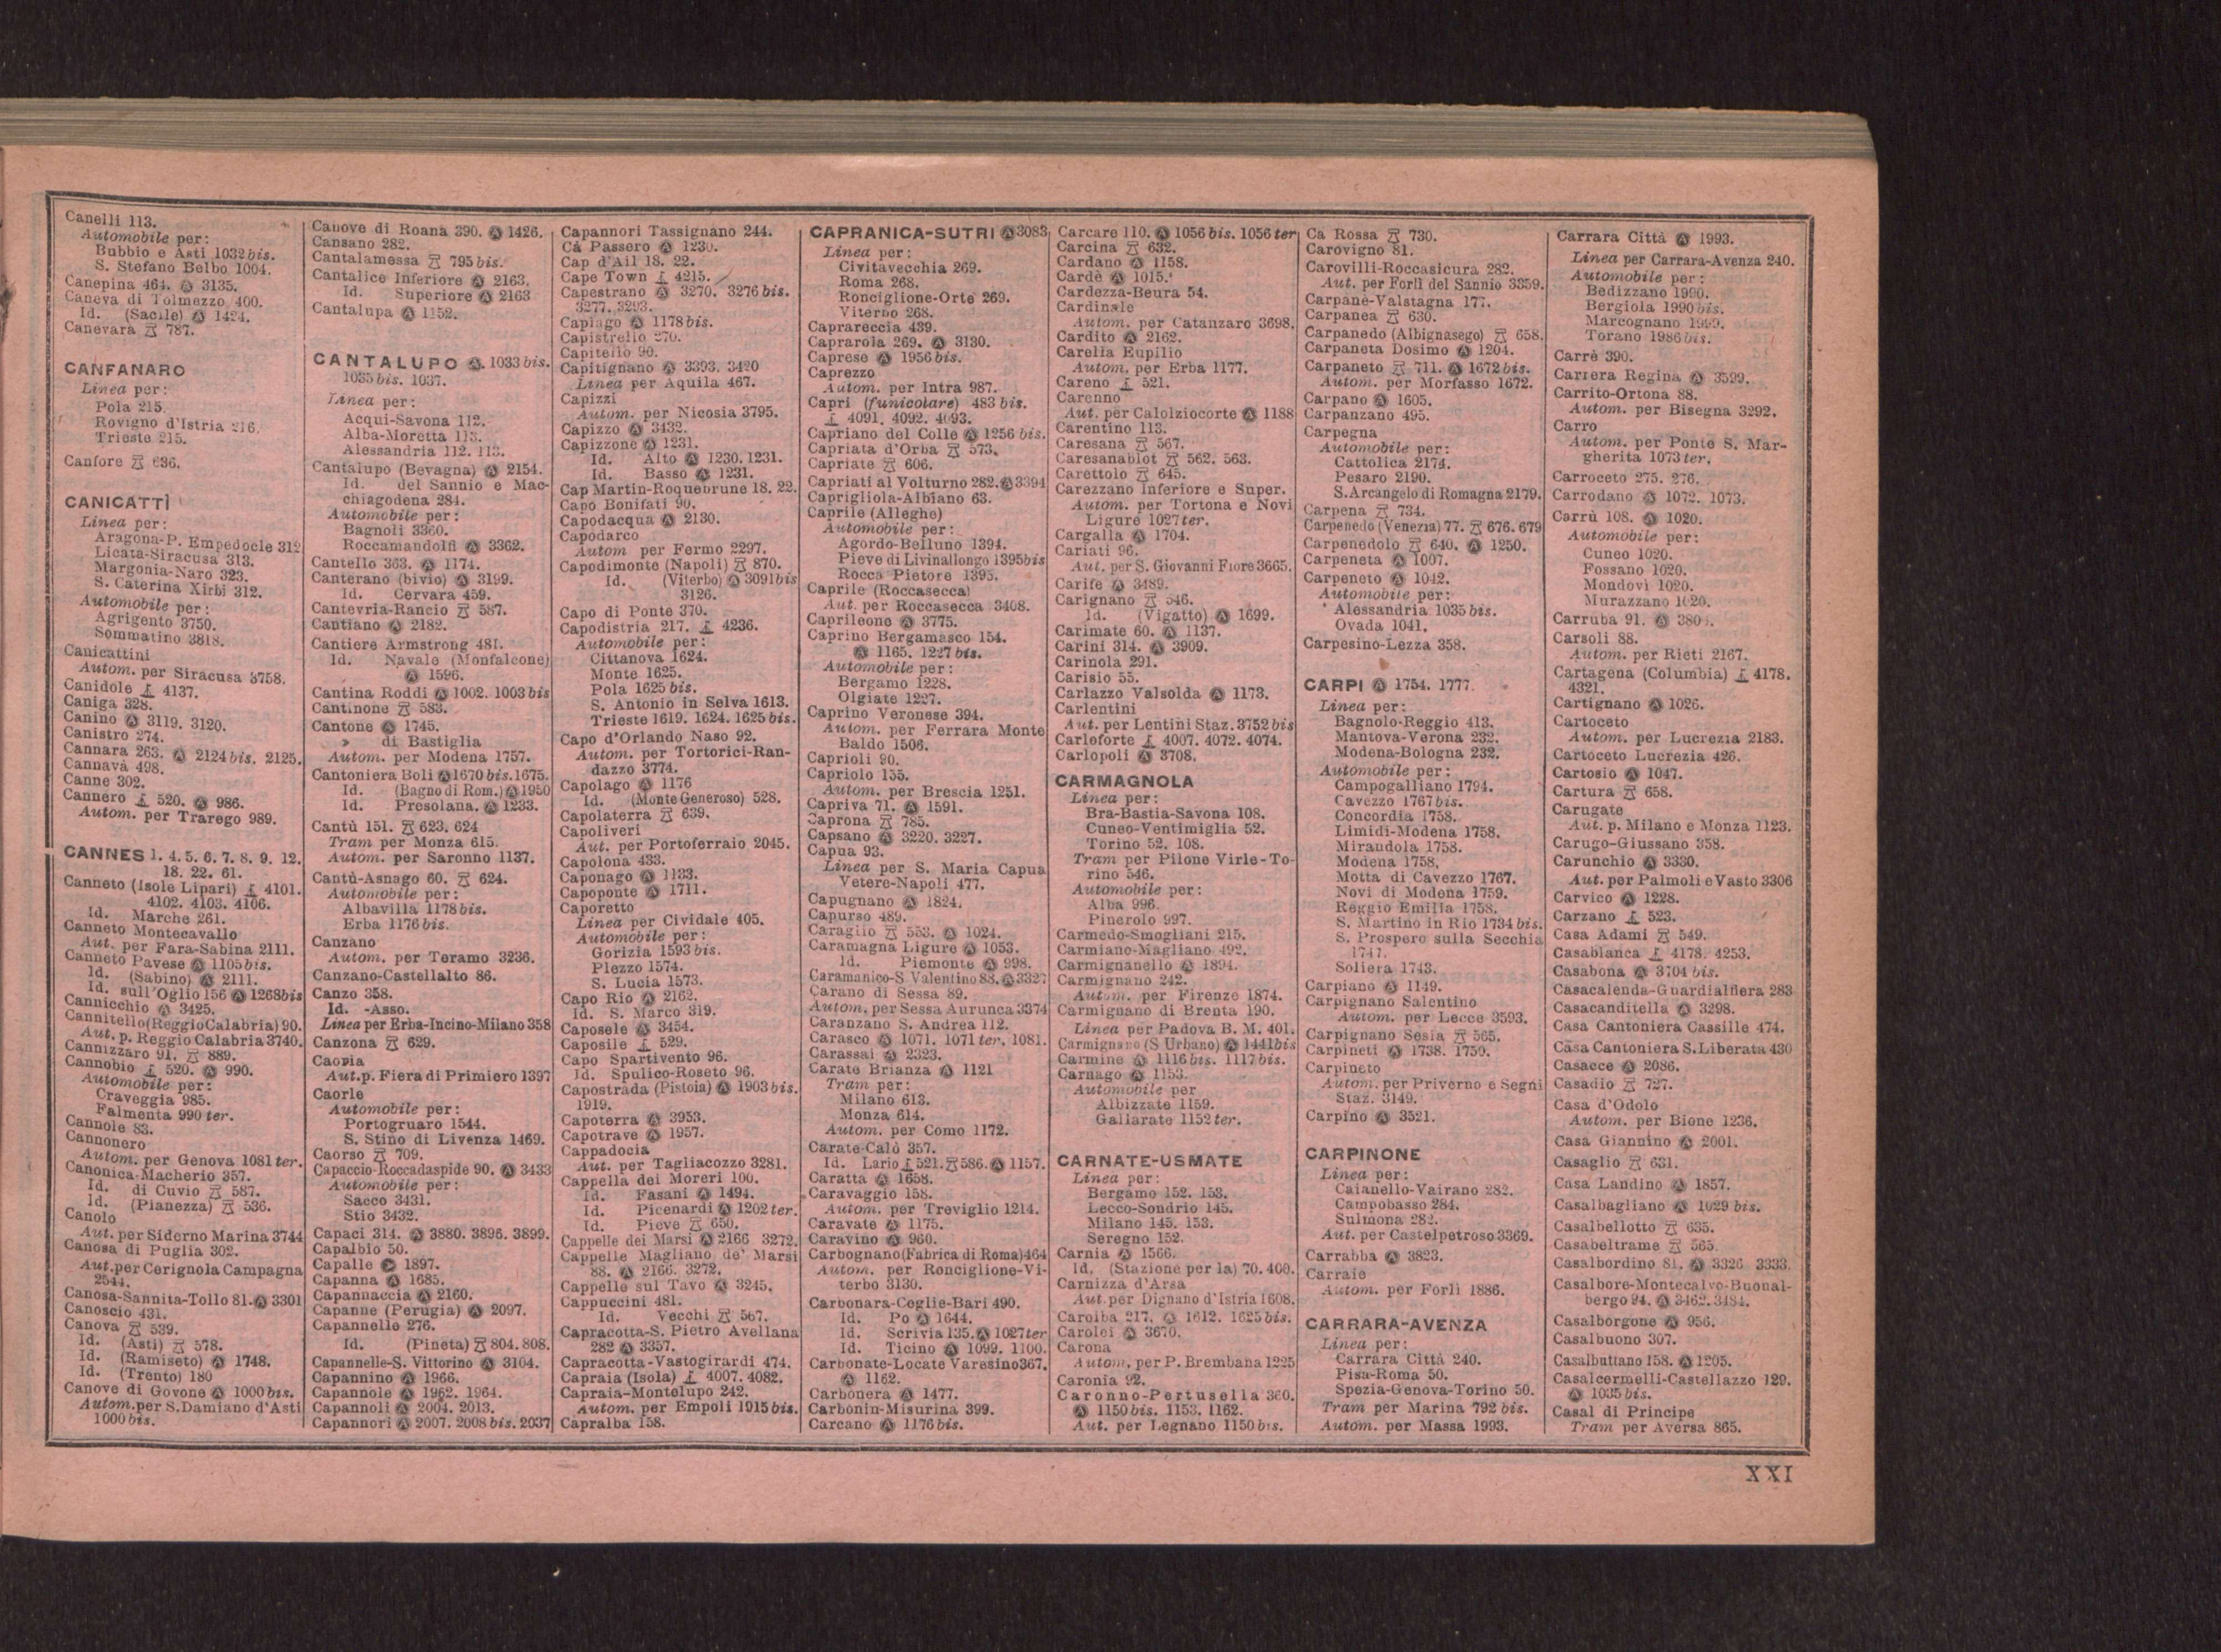 Canelli 113.
Automobile per:
Bubbio e Asti 1032 bis.
S. Stefano Belbo 1004.
Canepina 464. Ⓐ 3135.
Caneva di Tolmezzo 400.
Id. (Sacile) Ⓐ 1424.
Canevara 787.
CANFANARO
Linea per:
Pola 215.
Rovigno d'Istria 216.
Trieste 215.
Canfore 636.
CANICATTÌ
Linea per:
Aragona-P. Empedocle 312
Licata-Siracusa 313.
Margonia-Naro 323.
S. Caterina Xirbi 312.
Automobile per:
Agrigento 3750.
Sommatino 3818.
Canicattini
Autom. per Siracusa 3758.
Canidole 4137.
Caniga 328.
Canino Ⓐ 3119. 3120.
Canistro 274.
Cannara 263. Ⓐ 2124 bis. 2125.
Cannavà 498.
Canne 302.
Cannero 520. Ⓐ 986.
Autom. per Trarego 989.
CANNES 1. 4. 5. 6. 7. 8. 9. 12.
18. 22. 61.
Canneto (Isole Lipari) 4101.
4102. 4103. 4106.
Id. Marche 261.
Canneto Montecavallo
Aut. per Fara-Sabina 2111.
Canneto Pavese Ⓐ 1105 bis.
Id. (Sabino) Ⓐ 2111.
Id. sull'Oglio 156 Ⓐ 1268 bis
Cannicchio Ⓐ 3425.
Cannitello (Reggio Calabria) 90.
Aut. p. Reggio Calabria 3740.
Cannizzaro 91. 889.
Cannobio 520. Ⓐ 990.
Automobile per:
Craveggia 985.
Falmenta 990 ter.
Cannole 83.
Cannonero
Autom. per Genova 1081 ter.
Canonica-Macherio 357.
Id. di Cuvio 587.
Id. (Pianezza) 536.
Canolo
Aut. per Siderno Marina 3744
Canosa di Puglia 302.
Aut. per Cerignola Campagna
2544.
Canosa-Sannita-Tollo 81. Ⓐ 3301
Canoscio 431.
Canova 539.
Id. (Asti) 578.
Id. (Ramiseto) Ⓐ 1748.
Id. (Trento) 180
Canove di Govone Ⓐ 1000 bis.
Autom. per S. Damiano d'Asti
1000 bis.
Canove di Roana 390. Ⓐ 1426.
Cansano 282.
Cantalamessa 795 bis.
Cantalice Inferiore Ⓐ 2163.
Id. Superiore Ⓐ 2163
Cantalupa Ⓐ 1152.
CANTALUPO Ⓐ. 1033 bis.
1035 bis. 1037.
Linea per:
Acqui-Savona 112.
Alba-Moretta 113.
Alessandria 112. 113.
Cantalupo (Bevagna) Ⓐ 2154.
Id. del Sannio e Mac-
chiagodena 284.
Automobile per:
Bagnoli 3360.
Roccamandolfi Ⓐ 3362.
Cantello 363. Ⓐ 1174.
Canterano (bivio) Ⓐ 3199.
Id. Cervara 459.
Cantevria-Rancio 587.
Cantiano Ⓐ 2182.
Cantiere Armstrong 481.
Id. Navale (Monfalcone)
Ⓐ 1596.
Cantina Roddi Ⓐ 1002. 1003 bis
Cantinone 583.
Cantone Ⓐ 1745.
» di Bastiglia
Autom. per Modena 1757.
Cantoniera Boli Ⓐ 1670 bis. 1675.
Id. (Bagno di Rom.) Ⓐ 1950
Id. Presolana. Ⓐ 1233.
Cantù 151. 623. 624
Tram per Monza 615.
Autom. per Saronno 1137.
Cantù-Asnago 60. 624.
Automobile per:
Albavilla 1178 bis.
Erba 1176 bis.
Canzano
Autom. per Teramo 3236.
Canzano-Castellalto 86.
Canzo 358.
Id. -Asso.
Linea per Erba-Incino-Milano 358
Canzona 629.
Caoria
Aut. p. Fiera di Primiero 1397
Caorle
Automobile per:
Portogruaro 1544.
S. Stino di Livenza 1469.
Caorso 709.
Capaccio-Roccadaspide 90. Ⓐ 3433
Automobile per:
Sacco 3431.
Stio 3432.
Capaci 314. Ⓐ 3880. 3896. 3899.
Capalbio 50.
Capalle Ⓐ 1897.
Capanna Ⓐ 1685.
Capannaccia Ⓐ 2160.
Capanne (Perugia) Ⓐ 2097.
Capannelle 276.
Id. (Pineta) 804. 808.
Capannelle-S. Vittorino Ⓐ 3104.
Capannino Ⓐ 1966.
Capannole Ⓐ 1962. 1964.
Capannoli Ⓐ 2004. 2013.
Capannori Ⓐ 2007. 2008 bis. 2037
Capannori Tassignano 244.
Cà Passero Ⓐ 1230.
Cap d'Ail 18. 22.
Cape Town 4215.
Capestrano Ⓐ 3270. 3276 bis.
3277. 3293.
Capiago Ⓐ 1178 bis.
Capistrello 270.
Capitello 90.
Capitignano Ⓐ 3393. 3420
Linea per Aquila 467.
Capizzi
Autom. per Nicosia 3795.
Capizzo Ⓐ 3432.
Capizzone Ⓐ 1231.
Id. Alto Ⓐ 1230. 1231.
Id. Basso Ⓐ 1231.
Cap Martin-Roquebrune 18. 22.
Capo Bonifati 90.
Capodacqua Ⓐ 2130.
Capodarco
Autom per Fermo 2297.
Capodimonte (Napoli) 870.
Id. (Viterbo) Ⓐ 3091 bis
3126.
Capo di Ponte 370.
Capodistria 217. 4236.
Automobile per:
Cittanova 1624.
Monte 1625.
Pola 1625 bis.
S. Antonio in Selva 1613.
Trieste 1619. 1624. 1625 bis.
Capo d'Orlando Naso 92.
Autom. per Tortorici-Ran-
dazzo 3774.
Capolago Ⓐ 1176
Id. (Monte Generoso) 528.
Capolaterra 639.
Capoliveri
Aut. per Portoferraio 2045.
Capolona 433.
Caponago Ⓐ 1133.
Capoponte Ⓐ 1711.
Caporetto
Linea per Cividale 405.
Automobile per:
Gorizia 1593 bis.
Plezzo 1574.
S. Lucia 1573.
Capo Rio Ⓐ 2162.
Id. S. Marco 319.
Caposele Ⓐ 3454.
Caposile 529.
Capo Spartivento 96.
Id. Spulico-Roseto 96.
Capostrada (Pistoia) Ⓐ 1903 bis.
1919.
Capoterra Ⓐ 3953.
Capotrave Ⓐ 1957.
Cappadocia
Aut. per Tagliacozzo 3281.
Cappella dei Moreri 100.
Id. Fasani Ⓐ 1494.
Id. Picenardi Ⓐ 1202 ter.
Id. Pieve 650.
Cappelle dei Marsi Ⓐ 2166 3272.
Cappelle Magliano de' Marsi
88. Ⓐ 2166. 3272.
Cappelle sul Tavo Ⓐ 3245.
Cappuccini 481.
Id. Vecchi 567.
Capracotta-S. Pietro Avellana
282 Ⓐ 3357.
Capracotta-Vastogirardi 474.
Capraia (Isola) 4007. 4082.
Capraia-Montelupo 242.
Autom. per Empoli 1915 bis.
Capralba 158.
CAPRANICA-SUTRI Ⓐ 3083
Linea per:
Civitavecchia 269.
Roma 268.
Ronciglione-Orte 269.
Viterbo 268.
Caprareccia 439.
Caprarola 269. Ⓐ 3130.
Caprese Ⓐ 1956 bis.
Caprezzo
Autom. per Intra 987.
Capri (funicolare) 483 bis.
4091. 4092. 4093.
Capriano del Colle Ⓐ 1256 bis.
Capriata d'Orba 573.
Capriate 606.
Capriati al Volturno 282. Ⓐ 3394
Caprigliola-Albiano 63.
Caprile (Alleghe)
Automobile per:
Agordo-Belluno 1394.
Pieve di Livinallongo 1395 bis
Rocca Pietore 1395.
Caprile (Roccasecca)
Aut. per Roccasecca 3408.
Caprileone Ⓐ 3775.
Caprino Bergamasco 154.
Ⓐ 1165. 1227 bis.
Automobile per:
Bergamo 1228.
Olgiate 1227.
Caprino Veronese 394.
Autom. per Ferrara Monte
Baldo 1506.
Caprioli 90.
Capriolo 155.
Autom. per Brescia 1251.
Capriva 71. Ⓐ 1591.
Caprona 785.
Capsano Ⓐ 3220. 3227.
Capua 93.
Linea per S. Maria Capua
Vetere-Napoli 477.
Capugnano Ⓐ 1824.
Capurso 489.
Caraglio 553. Ⓐ 1024.
Caramagna Ligure Ⓐ 1053.
Id. Piemonte Ⓐ 998.
Caramanico-S Valentino 88. Ⓐ 3327
Carano di Sessa 89.
Autom. per Sessa Aurunca 3374
Caranzano S. Andrea 112.
Carasco Ⓐ 1071. 1071 ter. 1081.
Carassai Ⓐ 2323.
Carate Brianza Ⓐ 1121
Tram per:
Milano 613.
Monza 614.
Autom. per Como 1172.
Carate-Calò 357.
Id. Lario 521. 586. Ⓐ 1157.
Caratta Ⓐ 1658.
Caravaggio 158.
Autom. per Treviglio 1214.
Caravate Ⓐ 1175.
Caravino Ⓐ 960.
Carbognano (Fabrica di Roma) 464
Autom. per Ronciglione-Vi-
terbo 3130.
Carbonara-Ceglie-Bari 490.
Id. Po Ⓐ 1644.
Id. Scrivia 135. Ⓐ 1027 ter
Id. Ticino Ⓐ 1099. 1100.
Carbonate-Locate Varesino 367.
Ⓐ 1162.
Carbonera Ⓐ 1477.
Carbonin-Misurina 399.
Carcano Ⓐ 1176 bis.
Carcare 110. Ⓐ 1056 bis. 1056 ter
Carcina 632.
Cardano Ⓐ 1158.
Cardè Ⓐ 1015.
Cardezza-Beura 54.
Cardinale
Autom. per Catanzaro 3698.
Cardito Ⓐ 2162.
Carella Eupilio
Autom. per Erba 1177.
Careno 521.
Carenno
Aut. per Calolziocorte Ⓐ 1188
Carentino 113.
Caresana 567.
Caresanablot 562. 563.
Carettolo 645.
Carezzano Inferiore e Super.
Autom. per Tortona e Novi
Ligure 1027 ter.
Cargalla Ⓐ 1704.
Cariati 96.
Aut. per S. Giovanni Fiore 3665.
Carife Ⓐ 3489.
Carignano 546.
Id. (Vigatto) Ⓐ 1699.
Carimate 60. Ⓐ 1137.
Carini 314. Ⓐ 3909.
Carinola 291.
Carisio 55.
Carlazzo Valsolda Ⓐ 1173.
Carlentini
Aut. per Lentini Staz. 3752 bis
Carloforte 4007. 4072. 4074.
Carlopoli Ⓐ 3708.
CARMAGNOLA
Linea per:
Bra-Bastia-Savona 108.
Cuneo-Ventimiglia 52.
Torino 52. 108.
Tram per Pilone Virle-To-
rino 546.
Automobile per:
Alba 996.
Pinerolo 997.
Carmedo-Smogliani 215.
Carmiano-Magliano 492.
Carmignanello Ⓐ 1894.
Carmignano 242.
Autom. per Firenze 1874.
Carmignano di Brenta 190.
Linea per Padova B. M. 401.
Carmignano (S Urbano) Ⓐ 1441 bis
Carmine Ⓐ 1116 bis. 1117 bis.
Carnago Ⓐ 1153.
Automobile per
Albizzate 1159.
Gallarate 1152 ter.
CARNATE-USMATE
Linea per:
Bergamo 152. 153.
Lecco-Sondrio 145.
Milano 145. 153.
Seregno 152.
Carnia Ⓐ 1566.
Id. (Stazione per la) 70. 400.
Carnizza d'Arsa
Aut. per Dignano d'Istria 1608.
Caroiba 217. Ⓐ 1612. 1625 bis.
Carolei Ⓐ 3670.
Carona
Autom. per P. Brembana 1225
Caronia 92.
Caronno-Pertusella 360.
Ⓐ 1150 bis. 1153. 1162.
Aut. per Legnano 1150 bis.
Ca Rossa 730.
Carovigno 81.
Carovilli-Roccasicura 282.
Aut. per Forlì del Sannio 3359.
Carpanè-Valstagna 177.
Carpanea 630.
Carpanedo (Albignasego) 658.
Carpaneta Dosimo Ⓐ 1204.
Carpaneto 711. Ⓐ 1672 bis.
Autom. per Morfasso 1672.
Carpano Ⓐ 1605.
Carpanzano 495.
Carpegna
Automobile per:
Cattolica 2174.
Pesaro 2190.
S. Arcangelo di Romagna 2179.
Carpena 734.
Carpenedo (Venezia) 77. 676. 679
Carpenedolo 640. Ⓐ 1250.
Carpeneta Ⓐ 1007.
Carpeneto Ⓐ 1042.
Automobile per:
Alessandria 1035 bis.
Ovada 1041.
Carpesino-Lezza 358.
CARPI Ⓐ 1754. 1777.
Linea per:
Bagnolo-Reggio 413.
Mantova-Verona 232.
Modena-Bologna 232.
Automobile per:
Campogalliano 1794.
Cavezzo 1767 bis.
Concordia 1758.
Limidi-Modena 1758.
Mirandola 1758.
Modena 1758.
Motta di Cavezzo 1767.
Novi di Modena 1759.
Reggio Emilia 1758.
S. Martino in Rio 1734 bis.
S. Prospero sulla Secchia
1747.
Soliera 1743.
Carpiano Ⓐ 1149.
Carpignano Salentino
Autom. per Lecce 3593.
Carpignano Sesia 565.
Carpineti Ⓐ 1738. 1750.
Carpineto
Autom. per Priverno e Segni
Staz. 3149.
Carpino Ⓐ 3521.
CARPINONE
Linea per:
Caianello-Vairano 282.
Campobasso 284.
Sulmona 282.
Aut. per Castelpetroso 3369.
Carrabba Ⓐ 3823.
Carraie
Autom. per Forlì 1886.
CARRARA-AVENZA
Linea per:
Carrara Città 240.
Pisa-Roma 50.
Spezia-Genova-Torino 50.
Tram per Marina 792 bis.
Autom. per Massa 1993.
Carrara Città Ⓐ 1993.
Linea per Carrara-Avenza 240.
Automobile per:
Bedizzano 1990.
Bergiola 1990 bis.
Marcognano 1990.
Torano 1986 bis.
Carrè 390.
Carrera Regina Ⓐ 3599.
Carrito-Ortona 88.
Autom. per Bisegna 3292.
Carro
Autom. per Ponte S. Mar-
gherita 1073 ter.
Carroceto 275. 276.
Carrodano Ⓐ 1072. 1073.
Carrù 108. Ⓐ 1020.
Automobile per:
Cuneo 1020.
Fossano 1020.
Mondovì 1020.
Murazzano 1020.
Carruba 91. Ⓐ
Carsoli 88.
Autom. per Rieti 2167.
Cartagena (Columbia) 4178.
4321.
Cartignano Ⓐ 1026.
Cartoceto
Autom. per Lucrezia 2183.
Cartoceto Lucrezia 426.
Cartosio Ⓐ 1047.
Cartura 658.
Carugate
Aut. p. Milano e Monza 1123.
Carugo-Giussano 358.
Carunchio Ⓐ 3330.
Aut. per Palmoli e Vasto 3306
Carvico Ⓐ 1228.
Carzano 523.
Casa Adami 549.
Casablanca 4178. 4253.
Casabona Ⓐ 3704 bis.
Casacalenda-Guardialfiera 283
Casacanditella Ⓐ 3298.
Casa Cantoniera Cassille 474.
Casa Cantoniera S. Liberata 430
Casacce Ⓐ 2086.
Casadio 727.
Casa d'Odolo
Autom. per Bione 1236.
Casa Giannino Ⓐ 2001.
Casaglio 631.
Casa Landino Ⓐ 1857.
Casalbagliano Ⓐ 1029 bis.
Casalbellotto 635.
Casabeltrame 565.
Casalbordino 81. Ⓐ 3326 3333.
Casalbore-Montecalvo-Buonal-
bergo 94. Ⓐ 3462. 3484.
Casalborgone Ⓐ 956.
Casalbuono 307.
Casalbuttano 158. Ⓐ 1205.
Casalcermelli-Castellazzo 129.
Ⓐ 1035 bis.
Casal di Principe
Tram per Aversa 865.
XXI